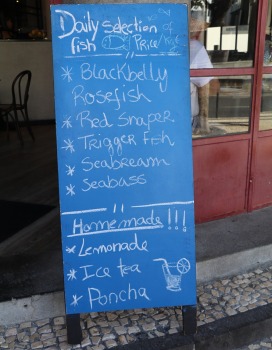 Daily selection of
fish Price/Kg
* Blackbelly
Rosefish
* Red Snaper
* Trigger Fish
* Seabream
* Seabass
Homemade!!!
* Lemonade
* Ice tea
* Poncha